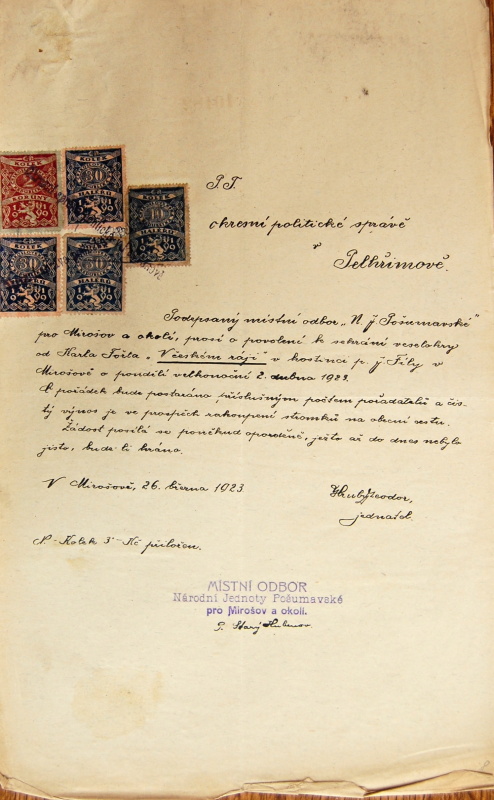 P. T.
okresní politické správě
v
Pelhřimově.
Podepsaný místní odbor „N. J. Pošumavské"
pro Mirošov a okolí, prosí o povolení k sehrání veselohry
od Karla Fořta „V českém ráji" v hostinci p. J. Fily v
Mirošově o pondělí velkonoční 2. dubna 1923.
O pořádek bude postaráno příslušným počtem pořadatelů a čis-
tý výnos je ve prospěch zakoupení stromků na obecní cestu.
Žádost posílá se poněkud opožděně, ježto až do dnes nebylo
jisto, bude-li hráno.
V Mirošově, 26. března 1923.
Hrubý Teodor,
jednatel.
Kolek 3 Kč přiložen.
MÍSTNÍ ODBOR
Národní Jednoty Pošumavské
pro Mirošov a okolí.
Starý
KOLEK
KORUNY
KOLEK
30
HALÉŘŮ
KOLEK
10
HALÉŘŮ
KOLEK
HALÉŘŮ
KOLEK
HALÉŘŮ